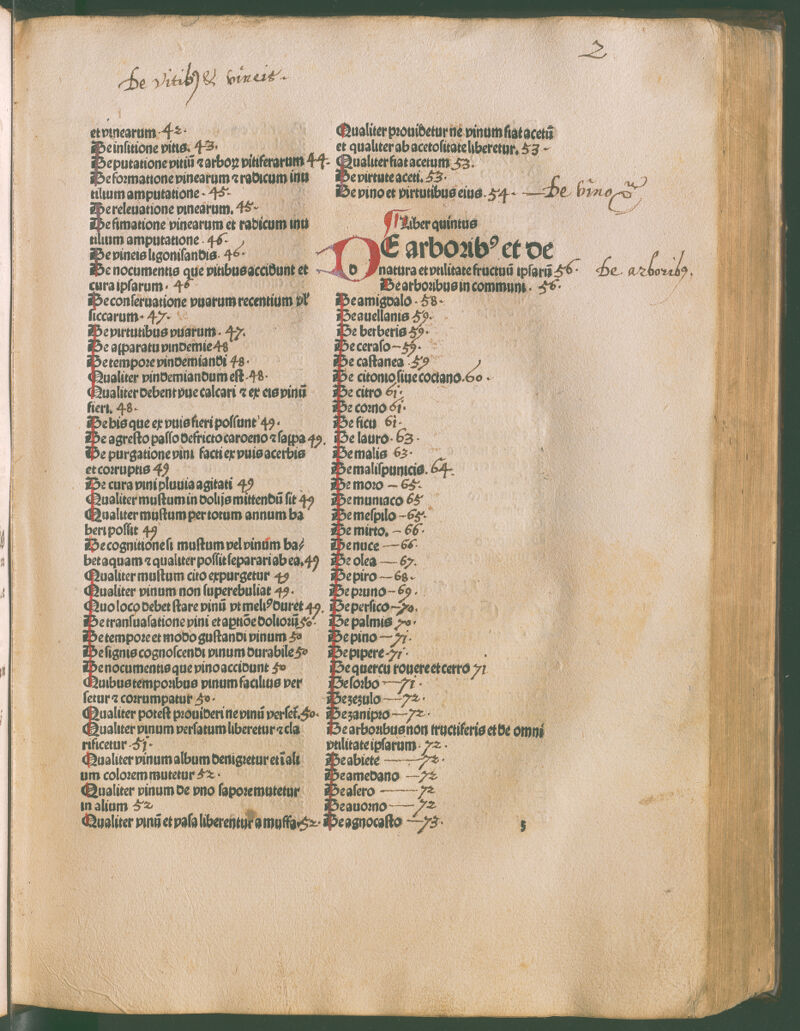 2
De vitibꝰ & vineis.
et vinearum. 42.
De insitione vitis. 43.
De putatione vitiū ⁊ arboꝝ vitiferarum 44.
De formatione vinearum ⁊ radicum inu
tilium amputatione. 45.
De releuatione vinearum. 45.
De fimatione vinearum et radicum inu
tilium amputatione. 46.
De vineis ligonisandis. 46.
De nocumentis que vitibus accidunt et
cura ipsarum. 46
De conseruatione vuarum recentium vl̛
siccarum. 47.
De virtutibus vuarum. 47.
De apparatu vindemie 48
De tempore vindemiandi 48.
Qualiter vindemiandum est. 48.
Qualiter debent vue calcari ⁊ ex eis vinū
fieri. 48.
De his que ex vuis fieri possunt 49.
De agresto passo defricto caroeno ⁊ sappa 49.
De purgatione vini facti ex vuis acerbis
et corruptis 49
De cura vini pluuia agitati 49
Qualiter mustum in dolijs mittendū sit 49
Qualiter mustum per totum annum ha
beri possit 49
De cognitione si mustum vel vinum ha/
bet aquam ⁊ qualiter possit separari ab ea. 49
Qualiter mustum cito expurgetur 49
Qualiter vinum non superebuliat 49.
Quo loco debet stare vinū vt meliꝰ duret 49.
De transuasatione vini et aptiōe doliorū 50.
De tempore et modo gustandi vinum 50
De signis cognoscendi vinum durabile 50
De nocumentis que vino accidunt 50
Quibus temporibus vinum facilius ver
setur ⁊ corrumpatur 50.
Qualiter potest prouideri ne vinū verset̛. 50.
Qualiter vinum versatum liberetur ⁊ cla
rificetur. 51.
Qualiter vinum album denigretur et ī ali
um colorem mutetur 52.
Qualiter vinum de vno sapore mutetur
in alium 52
Qualiter vinū et vasa liberentur a muffa. 52.
Qualiter prouidetur ne vinum fiat acetū
et qualiter ab acetositate liberetur. 53.
Qualiter fiat acetum 53.
De virtute aceti. 53.
De vino et virtutibus eius. 54. — De vino
¶ Liber quintus
DE arboribꝰ et de
natura et vtilitate fructuū ipsarū 56. De arboribꝰ.
De arboribus in communi. 56.
De amigdalo. 58.
De auellanis 59.
De berberis 59.
De ceraso — 59.
De castanea. 59
De citonio siue cociano. 60.
De citro 61.
De corno 61.
De ficu 61.
De lauro. 63.
De malis 63.
De malispunicis. 64.
De moro — 65.
De muniaco 65
De mespilo — 65.
De mirto. — 66.
De nuce — 66.
De olea — 67.
De piro — 68.
De pruno — 69.
De persico — 70.
De palmis 70.
De pino — 71.
De pipere — 71.
De quercu rouere et cerro 71
De sorbo — 71.
De zezulo — 72.
De zanipro — 72.
De arboribus non fructiferis et de omni
vtilitate ipsarum. 72.
De abiete — 72.
De amedano — 72
De asero — 72
De auorno — 72
De agnocasto — 73.
5